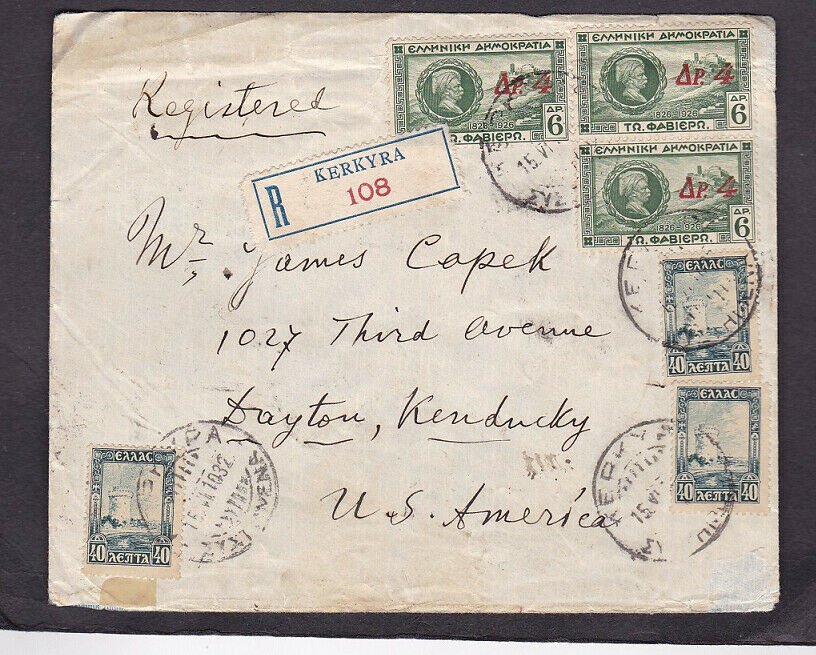 Registered
ΕΛΛΗΝΙΚΗ ΔΗΜΟΚΡΑΤΙΑ
ΔΡ. 4
ΔΡ.
6
1826-1926
ΤΩ. ΦΑΒΙΕΡΩ.
ΕΛΛΗΝΙΚΗ ΔΗΜΟΚΡΑΤΙΑ
ΔΡ. 4
ΔΡ.
6
1826-1926
ΤΩ. ΦΑΒΙΕΡΩ.
ΕΛΛΗΝΙΚΗ ΔΗΜΟΚΡΑΤΙΑ
ΔΡ. 4
ΔΡ.
6
1826-1926
ΤΩ. ΦΑΒΙΕΡΩ.
R KERKYRA
108
15 VI
Mr. James Capek
1027 Third Avenue
Dayton, Kenducky
U.S. America
ΕΛΛΑΣ
40 ΛΕΠΤΑ 40
ΕΛΛΑΣ
40 ΛΕΠΤΑ 40
ΚΕΡΚΥ
15 VI
ΕΛΛΑΣ
40 ΛΕΠΤΑ 40
ΚΕΡΚΥΡΑ
15 VI 1932